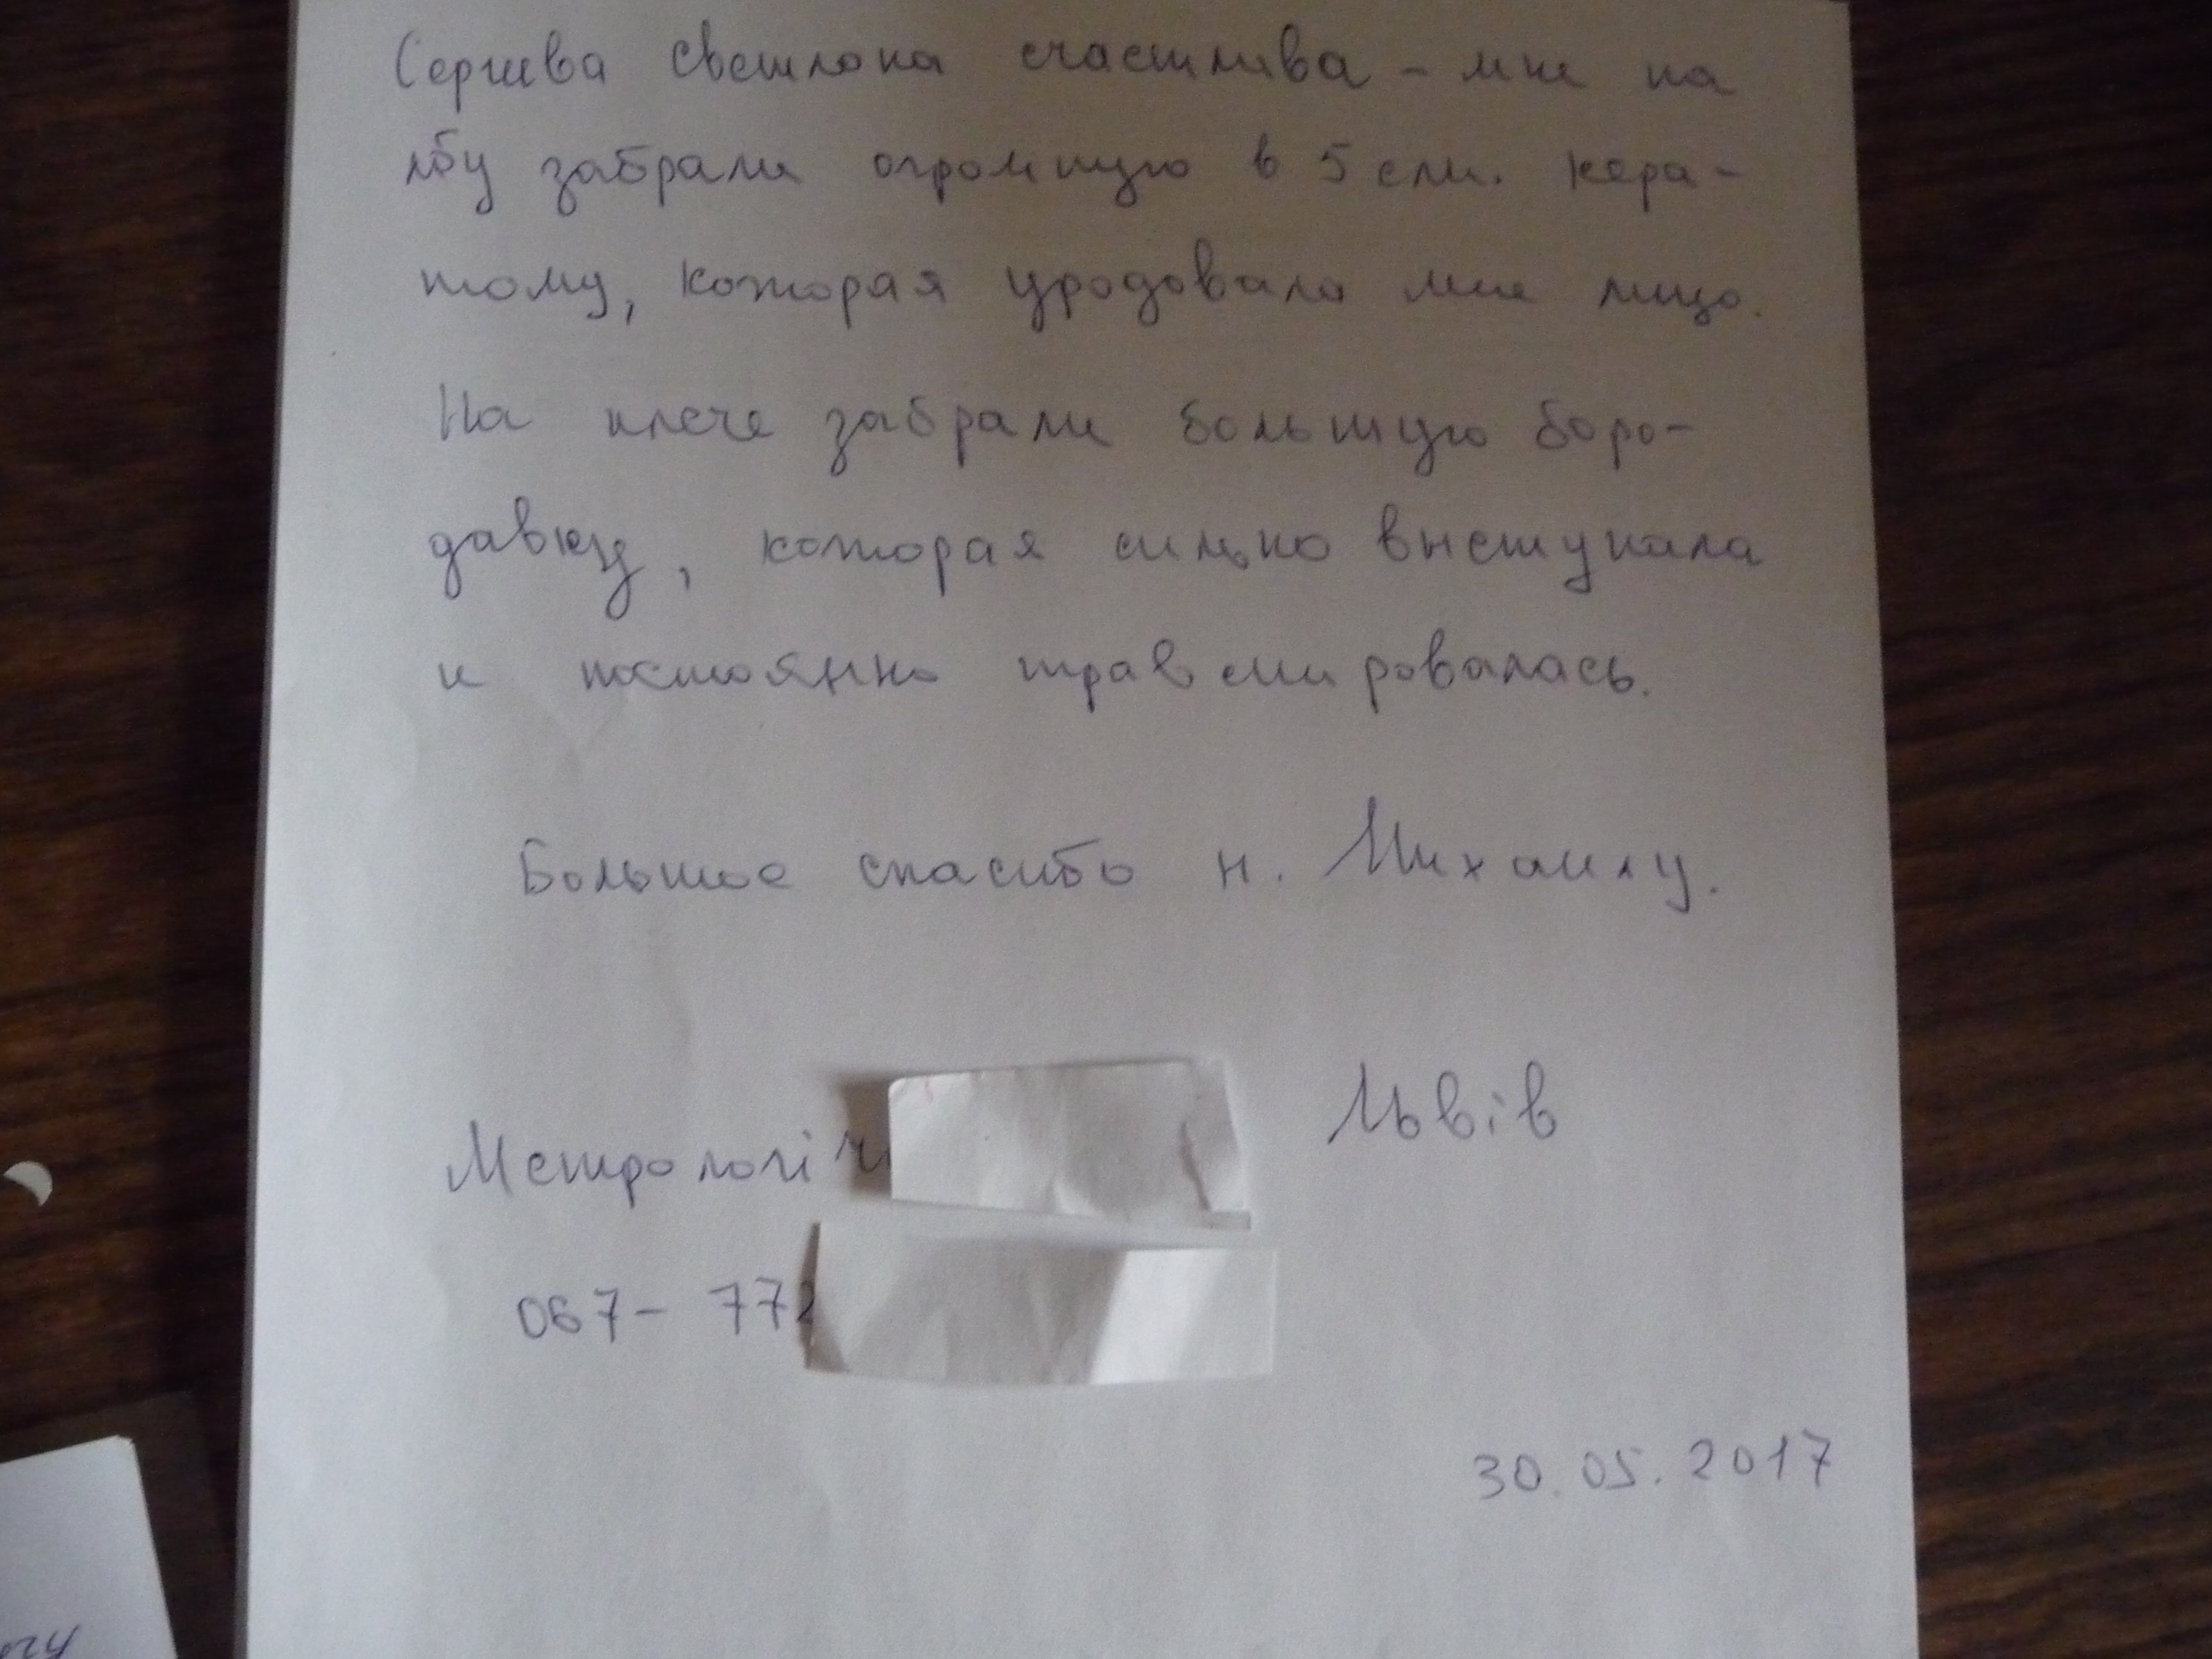 Сергиева Светлана счастлива - мне на
лбу забрали огромную в 5 см. кера-
тому, которая уродовала мне лицо.
На плече забрали большую боро-
давку, которая сильно выступала
и постоянно травмировалась.
Большое спасибо п. Михаилу.
Львів
Метрологіч
067- 772
30.05.2017